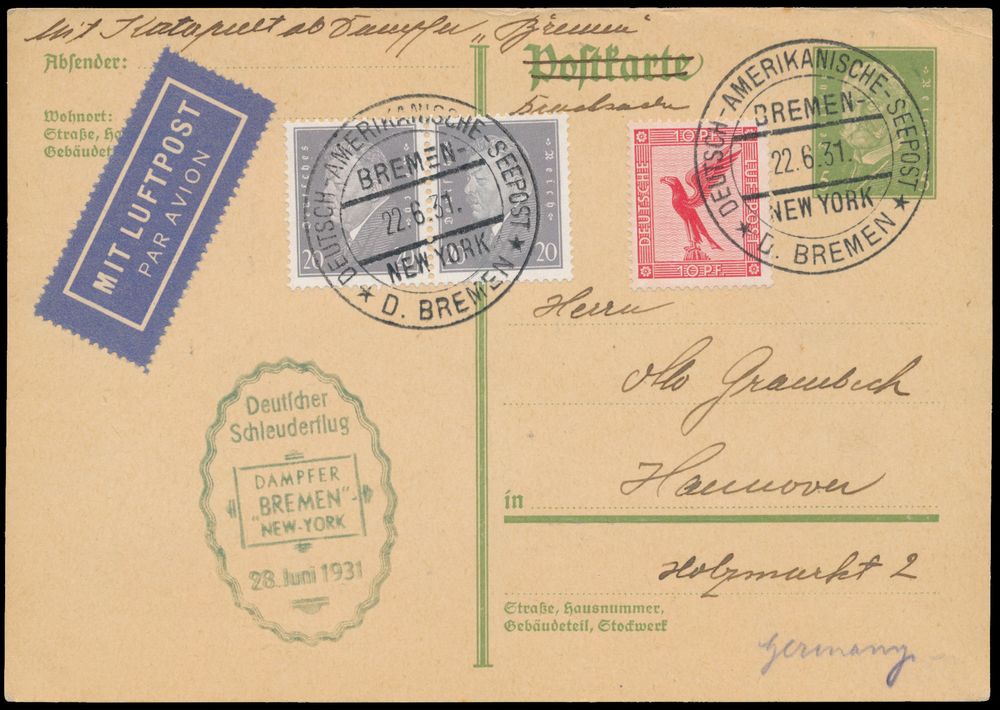 Mit Katapult ab Dampfer „Bremen"
Absender:
Postkarte
Drucksache
Wohnort:
Straße, Ha
Gebäudet
MIT LUFTPOST
PAR AVION
DEUTSCH-AMERIKANISCHE-SEEPOST
BREMEN-
22.6.31.
NEW YORK
★ D. BREMEN ★
Reich
20
20
10 PF.
DEUTSCHE
LUFTPOST
10 PF.
DEUTSCH-AMERIKANISCHE-SEEPOST
BREMEN-
22.6.31.
NEW YORK
★ D. BREMEN ★
Reich
5
Deutscher
Schleuderflug
DAMPFER
"BREMEN"-
"NEW-YORK
28. Juni 1931
Herrn
Otto Grambeck
Hannover
in
Holzmarkt 2
Straße, Hausnummer,
Gebäudeteil, Stockwerk
Germany